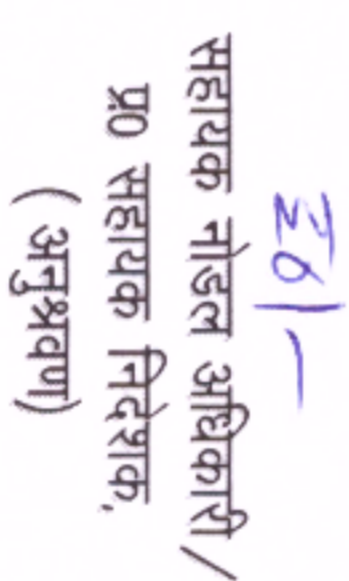 ह०/-
सहायक नोडल अधिकारी /
प्र० सहायक निदेशक,
( अनुश्रवण)